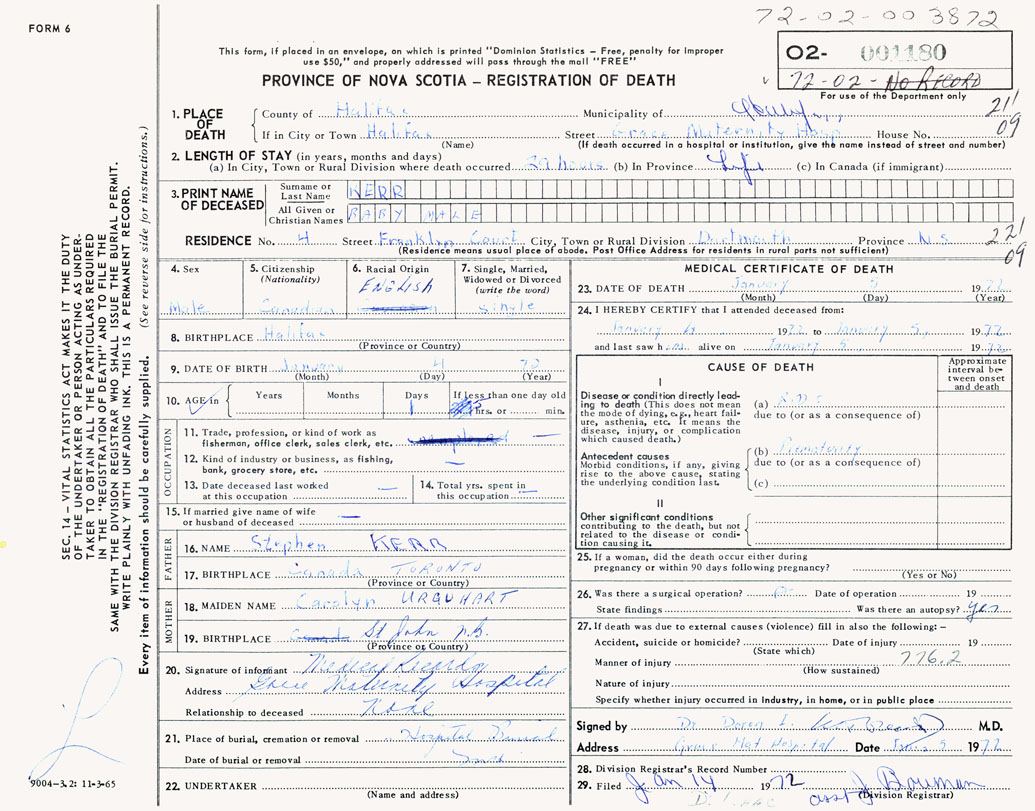 72-02-00 3872
FORM 6
This form, if placed in an envelope, on which is printed "Dominion Statistics – Free, penalty for improper
use $50," and properly addressed will pass through the mail "FREE"
PROVINCE OF NOVA SCOTIA – REGISTRATION OF DEATH
02- 001180
72-02- No RECORD
For use of the Department only
SEC. 14 – VITAL STATISTICS ACT MAKES IT THE DUTY
OF THE UNDERTAKER OR PERSON ACTING AS UNDER-
TAKER TO OBTAIN ALL THE PARTICULARS REQUIRED
IN THE "REGISTRATION OF DEATH" AND TO FILE THE
SAME WITH THE DIVISION REGISTRAR WHO SHALL ISSUE THE BURIAL PERMIT.
WRITE PLAINLY WITH UNFADING INK. THIS IS A PERMANENT RECORD.
Every item of information should be carefully supplied. (See reverse side for instructions.)
1. PLACE OF DEATH
County of Halifax Municipality of
211
09
If in City or Town Halifax Street Grace Maternity Hosp House No.
(Name) (If death occurred in a hospital or institution, give the name instead of street and number)
2. LENGTH OF STAY (in years, months and days)
(a) In City, Town or Rural Division where death occurred 29 hours (b) In Province Life (c) In Canada (if immigrant)
3. PRINT NAME OF DECEASED
Surname or Last Name KERR
All Given or Christian Names BABY MALE
RESIDENCE No. 4 Street Franklyn Court City, Town or Rural Division Dartmouth Province N.S.
221
09
(Residence means usual place of abode. Post Office Address for residents in rural parts not sufficient)
4. Sex
Male
5. Citizenship (Nationality)
Canadian
6. Racial Origin
ENGLISH
7. Single, Married, Widowed or Divorced (write the word)
Single
8. BIRTHPLACE Halifax
(Province or Country)
9. DATE OF BIRTH January 4 72
(Month) (Day) (Year)
10. AGE in Years Months Days If less than one day old
1 hrs. or min.
OCCUPATION
11. Trade, profession, or kind of work as
fisherman, office clerk, sales clerk, etc. —
12. Kind of industry or business, as fishing,
bank, grocery store, etc. —
13. Date deceased last worked
at this occupation —
14. Total yrs. spent in
this occupation —
15. If married give name of wife
or husband of deceased —
FATHER
16. NAME Stephen KERR
17. BIRTHPLACE Canada TORONTO
(Province or Country)
MOTHER
18. MAIDEN NAME Carolyn URQUHART
19. BIRTHPLACE St John N.B.
(Province or Country)
20. Signature of informant Medical Records
Address Grace Maternity Hospital
Relationship to deceased None
21. Place of burial, cremation or removal Hospital
Date of burial or removal
22. UNDERTAKER
(Name and Address)
9004-3.2: 11-3-65
MEDICAL CERTIFICATE OF DEATH
23. DATE OF DEATH January 5 1972
(Month) (Day) (Year)
24. I HEREBY CERTIFY that I attended deceased from:
January 4 1972 to January 5, 1972
and last saw h alive on January 5 1972
CAUSE OF DEATH
Approximate interval between onset and death
I
Disease or condition directly lead-
ing to death (This does not mean
the mode of dying, e.g., heart fail-
ure, asthenia, etc. It means the
disease, injury, or complication
which caused death.)
(a) R.D.S
due to (or as a consequence of)
Antecedent causes
Morbid conditions, if any, giving
rise to the above cause, stating
the underlying condition last.
(b) Prematurity
due to (or as a consequence of)
(c)
II
Other significant conditions
contributing to the death, but not
related to the disease or condi-
tion causing it.
25. If a woman, did the death occur either during
pregnancy or within 90 days following pregnancy?
(Yes or No)
26. Was there a surgical operation? Date of operation 19
State findings Was there an autopsy? yes
27. If death was due to external causes (violence) fill in also the following: –
Accident, suicide or homicide? Date of injury 19
(State which)
Manner of injury 776.2
(How sustained)
Nature of injury
Specify whether injury occurred in industry, in home, or in public place
Signed by Dr. Doren M.D.
Address Grace Mat Hospital Date Jan. 5 1972
28. Division Registrar's Record Number
29. Filed Jan 14 1972 asst J Bowman
(Division Registrar)